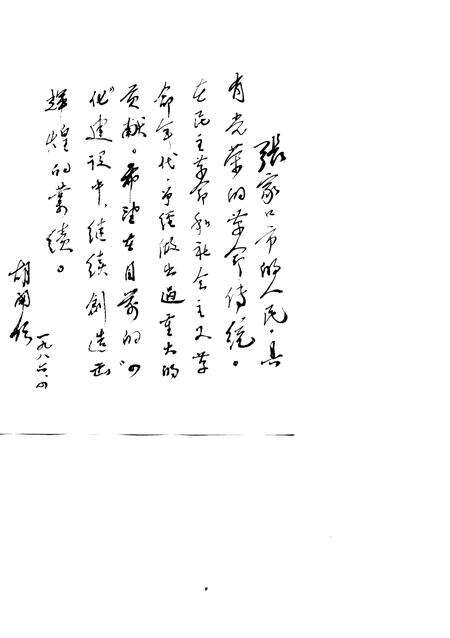 張家口市的人民，具
有光荣的革命传统。
在民主革命和社会主义革
命年代，曾经做出过重大的
贡献。希望在目前的“四
化”建设中，继续创造出
辉煌的業绩。
胡
一九八六.四